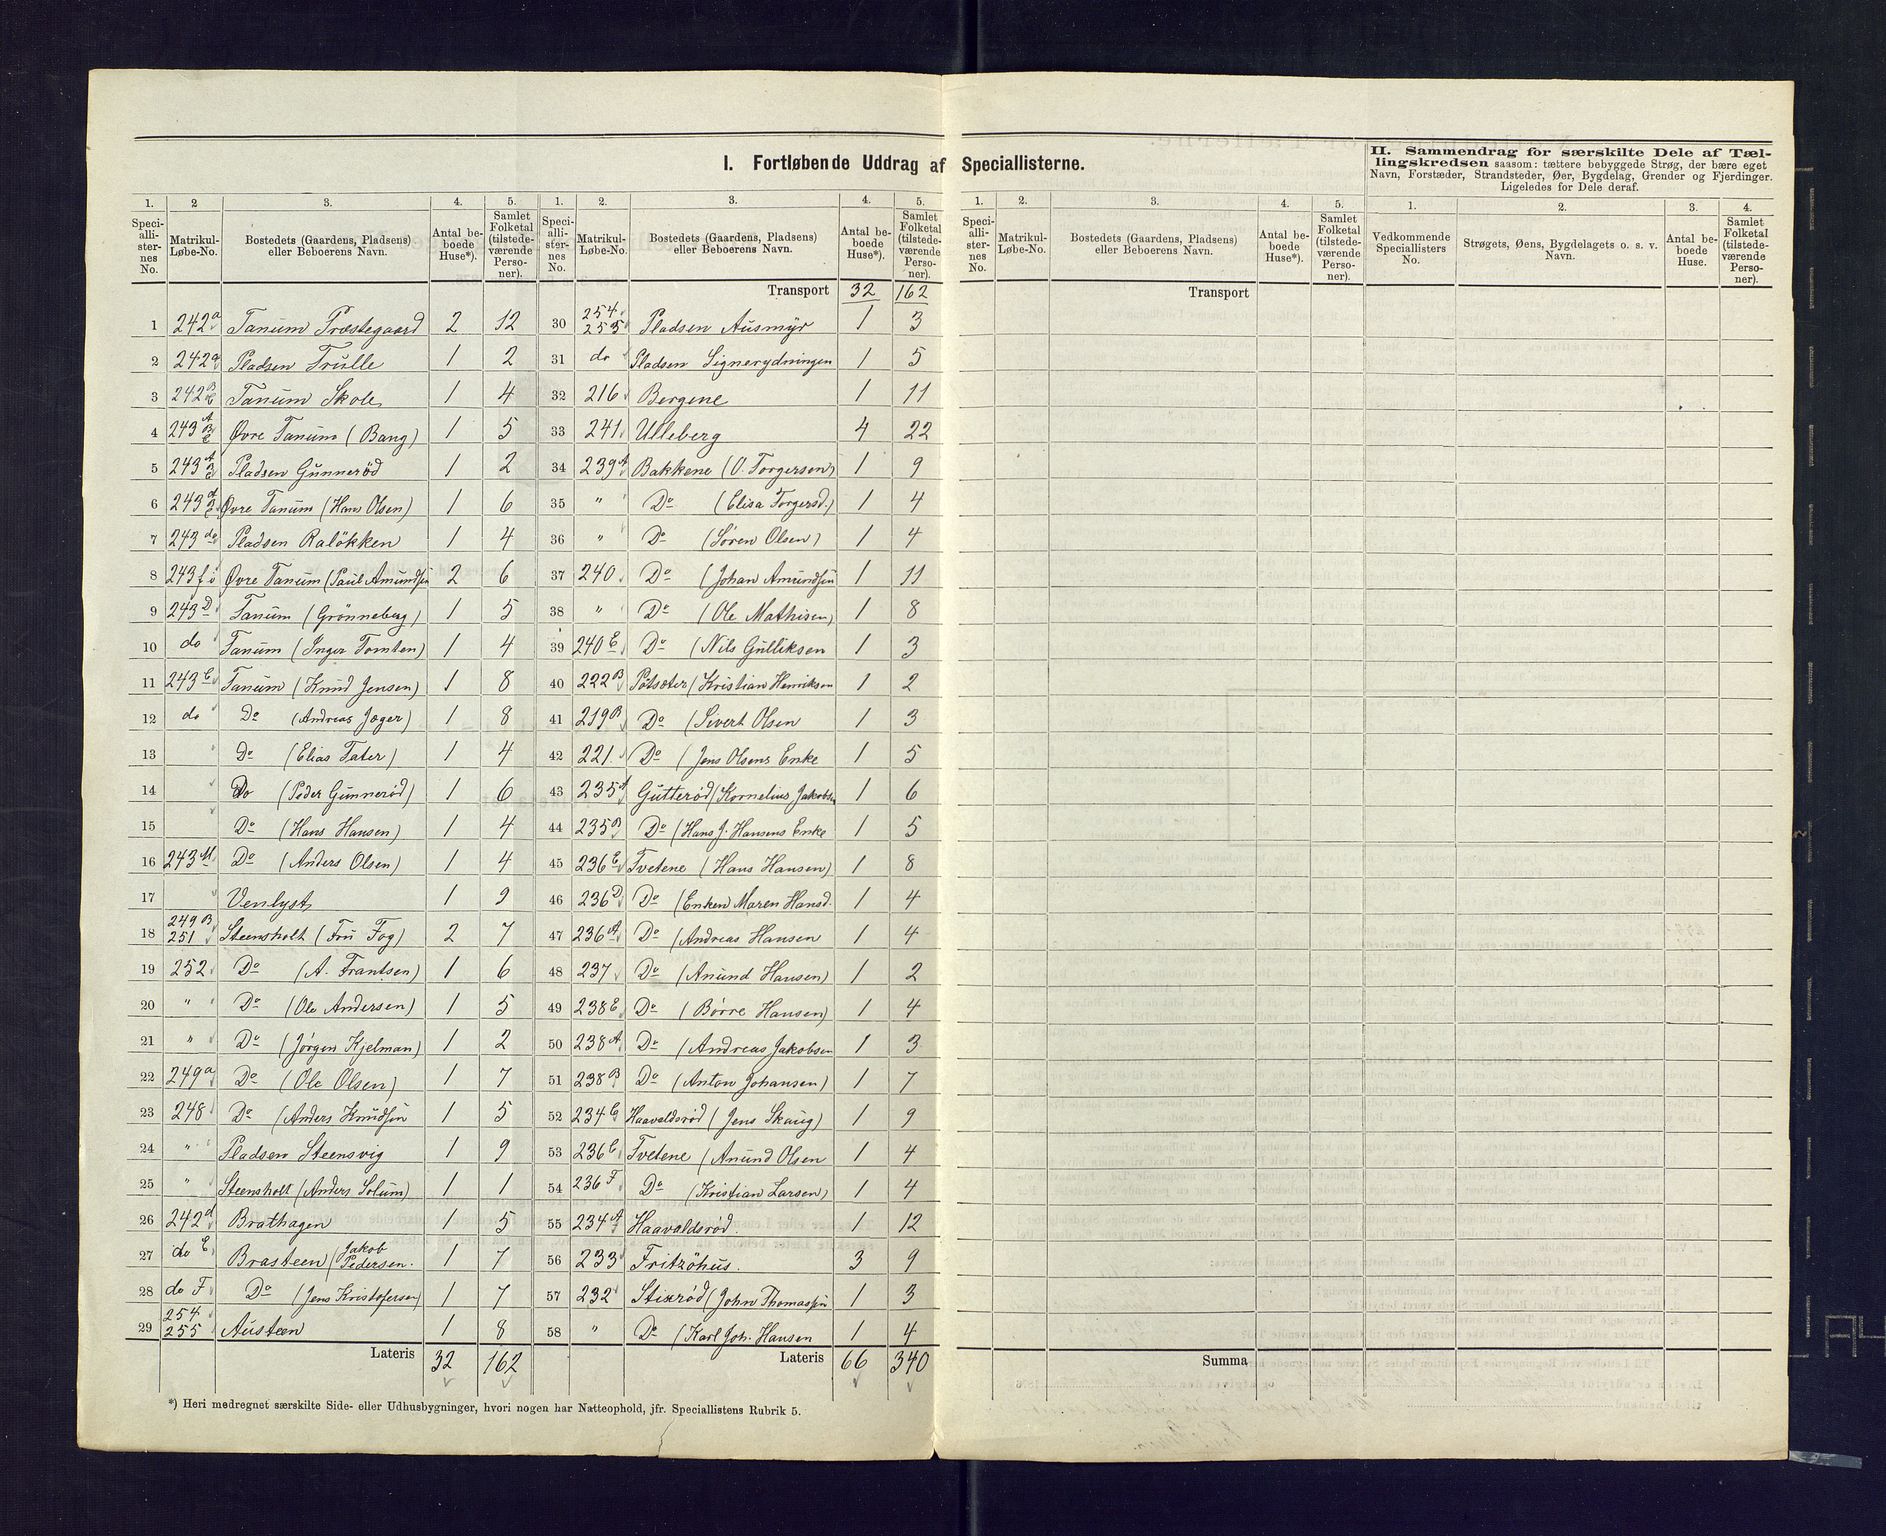 I. Fortløbende Uddrag af Speciallisterne.
II. Sammendrag for særskilte Dele af Tællingskredsen saasom: tættere bebyggede Strøg, der bære eget Navn, Forstæder, Strandsteder, Øer, Bygdelag, Grender og Fjerdinger. Ligeledes for Dele deraf.
1. 2 3. 4. 5. 1. 2. 3. 4. 5. 1. 2. 3. 4. 5. 1. 2. 3. 4.
Speciallisternes No. Matrikul-Løbe-No. Bostedets (Gaardens, Pladsens) eller Beboerens Navn. Antal beboede Huse*). Samlet Folketal (tilstedeværende Personer).
Speciallisternes No. Matrikul-Løbe-No. Bostedets (Gaardens, Pladsens) eller Beboerens Navn. Antal beboede Huse*). Samlet Folketal (tilstedeværende Personer).
Speciallisternes No. Matrikul-Løbe-No. Bostedets (Gaardens, Pladsens) eller Beboerens Navn. Antal beboede Huse*). Samlet Folketal (tilstedeværende Personer).
Vedkommende Speciallisters No. Strøgets, Øens, Bygdelagets o. s. v. Navn. Antal beboede Huse. Samlet Folketal (tilstedeværende Personer).
1 242a Tanum Præstegaard 2 12
2 242a Pladsen Trulle 1 2
3 242 B Tanum Skole 1 4
4 243 A B C Øvre Tanum (Bang) 1 5
5 243 A Pladsen Gunnerød 1 2
6 243 Øvre Tanum (Hans Olsen) 1 6
7 243 do Pladsen Raløkken 1 4
8 243 f Øvre Tanum (Paul Amundsen 2 6
9 243 D Tanum (Grønneberg) 1 5
10 do Tanum (Inger Tomten) 1 4
11 243 Tanum (Knud Jensen) 1 8
12 do Do (Andreas Jæger) 1 8
13 Do (Elias Tater) 1 4
14 Do (Peder Gunnerød) 1 6
15 Do (Hans Hansen) 1 4
16 243 M Do (Anders Olsen) 1 4
17 Venlyst 1 9
18 249 B 251 Steensholt (Fru Fog) 2 7
19 252 Do (A. Frantsen) 1 6
20 " Do (Ole Andersen) 1 5
21 " Do (Jørgen Kjelman) 1 2
22 249a Do (Ole Olsen) 1 7
23 248 Do (Anders Knudsen 1 5
24 " Pladsen Steensvig 1 9
25 " Steensholt (Anders Solum) 1 1
26 242d Brathagen 1 5
27 do E Brasteen (Jakob Pedersen. 1 7
28 do F Do (Jens Kristofersen) 1 7
29 254 255 Austeen 1 8
Lateris 32 162
Transport 32 162
30 254 255 Pladsen Ausmyr 1 3
31 do Pladsen Signerydningen 1 5
32 216 Bergene 1 11
33 241 Ulleberg 4 22
34 239 A Bakkene (O. Torgersen) 1 9
35 " Do (Elisa Torgersd.) 1 4
36 " Do (Søren Olsen) 1 4
37 240 Do (Johan Amundsen 1 11
38 " Do (Ole Mathisen) 1 8
39 240 Do (Nils Gulliksen 1 3
40 222 B Pølsæter (Kristian Henriksen 1 2
41 219 B Do (Severt Olsen 1 3
42 221. Do (Jens Olsens Enke 1 5
43 235 A Gutterød (Kornelius Jakobsen 1 6
44 235 B Do (Hans J. Hansens Enke 1 5
45 236 Tvetene (Hans Hansen) 1 8
46 236 D Do (Enken Maren Hansd. 1 4
47 236 A Do (Andreas Hansen 1 4
48 237 Do (Anund Hansen) 1 2
49 238 Do (Børre Hansen) 1 4
50 238 A Do (Andreas Jakobsen 1 3
51 238 B Do (Anton Johansen) 1 7
52 234 Haavaldsrød (Jens Skaug) 1 9
53 236 Tvetene (Anund Olsen 1 4
54 236 F Do (Kristian Larsen) 1 4
55 234 A Haavaldsrød. 1 12
56 233 Fritzöhus. 3 9
57 232 Stixrød (John Thomassen 1 3
58 " Do (Karl Joh. Hansen 1 4
Lateris 66 340
Transport
Summa
*) Heri medregnet særskilte Side- eller Udhusbygninger, hvori nogen har Natteophold, jfr. Speciallistens Rubrik 5.